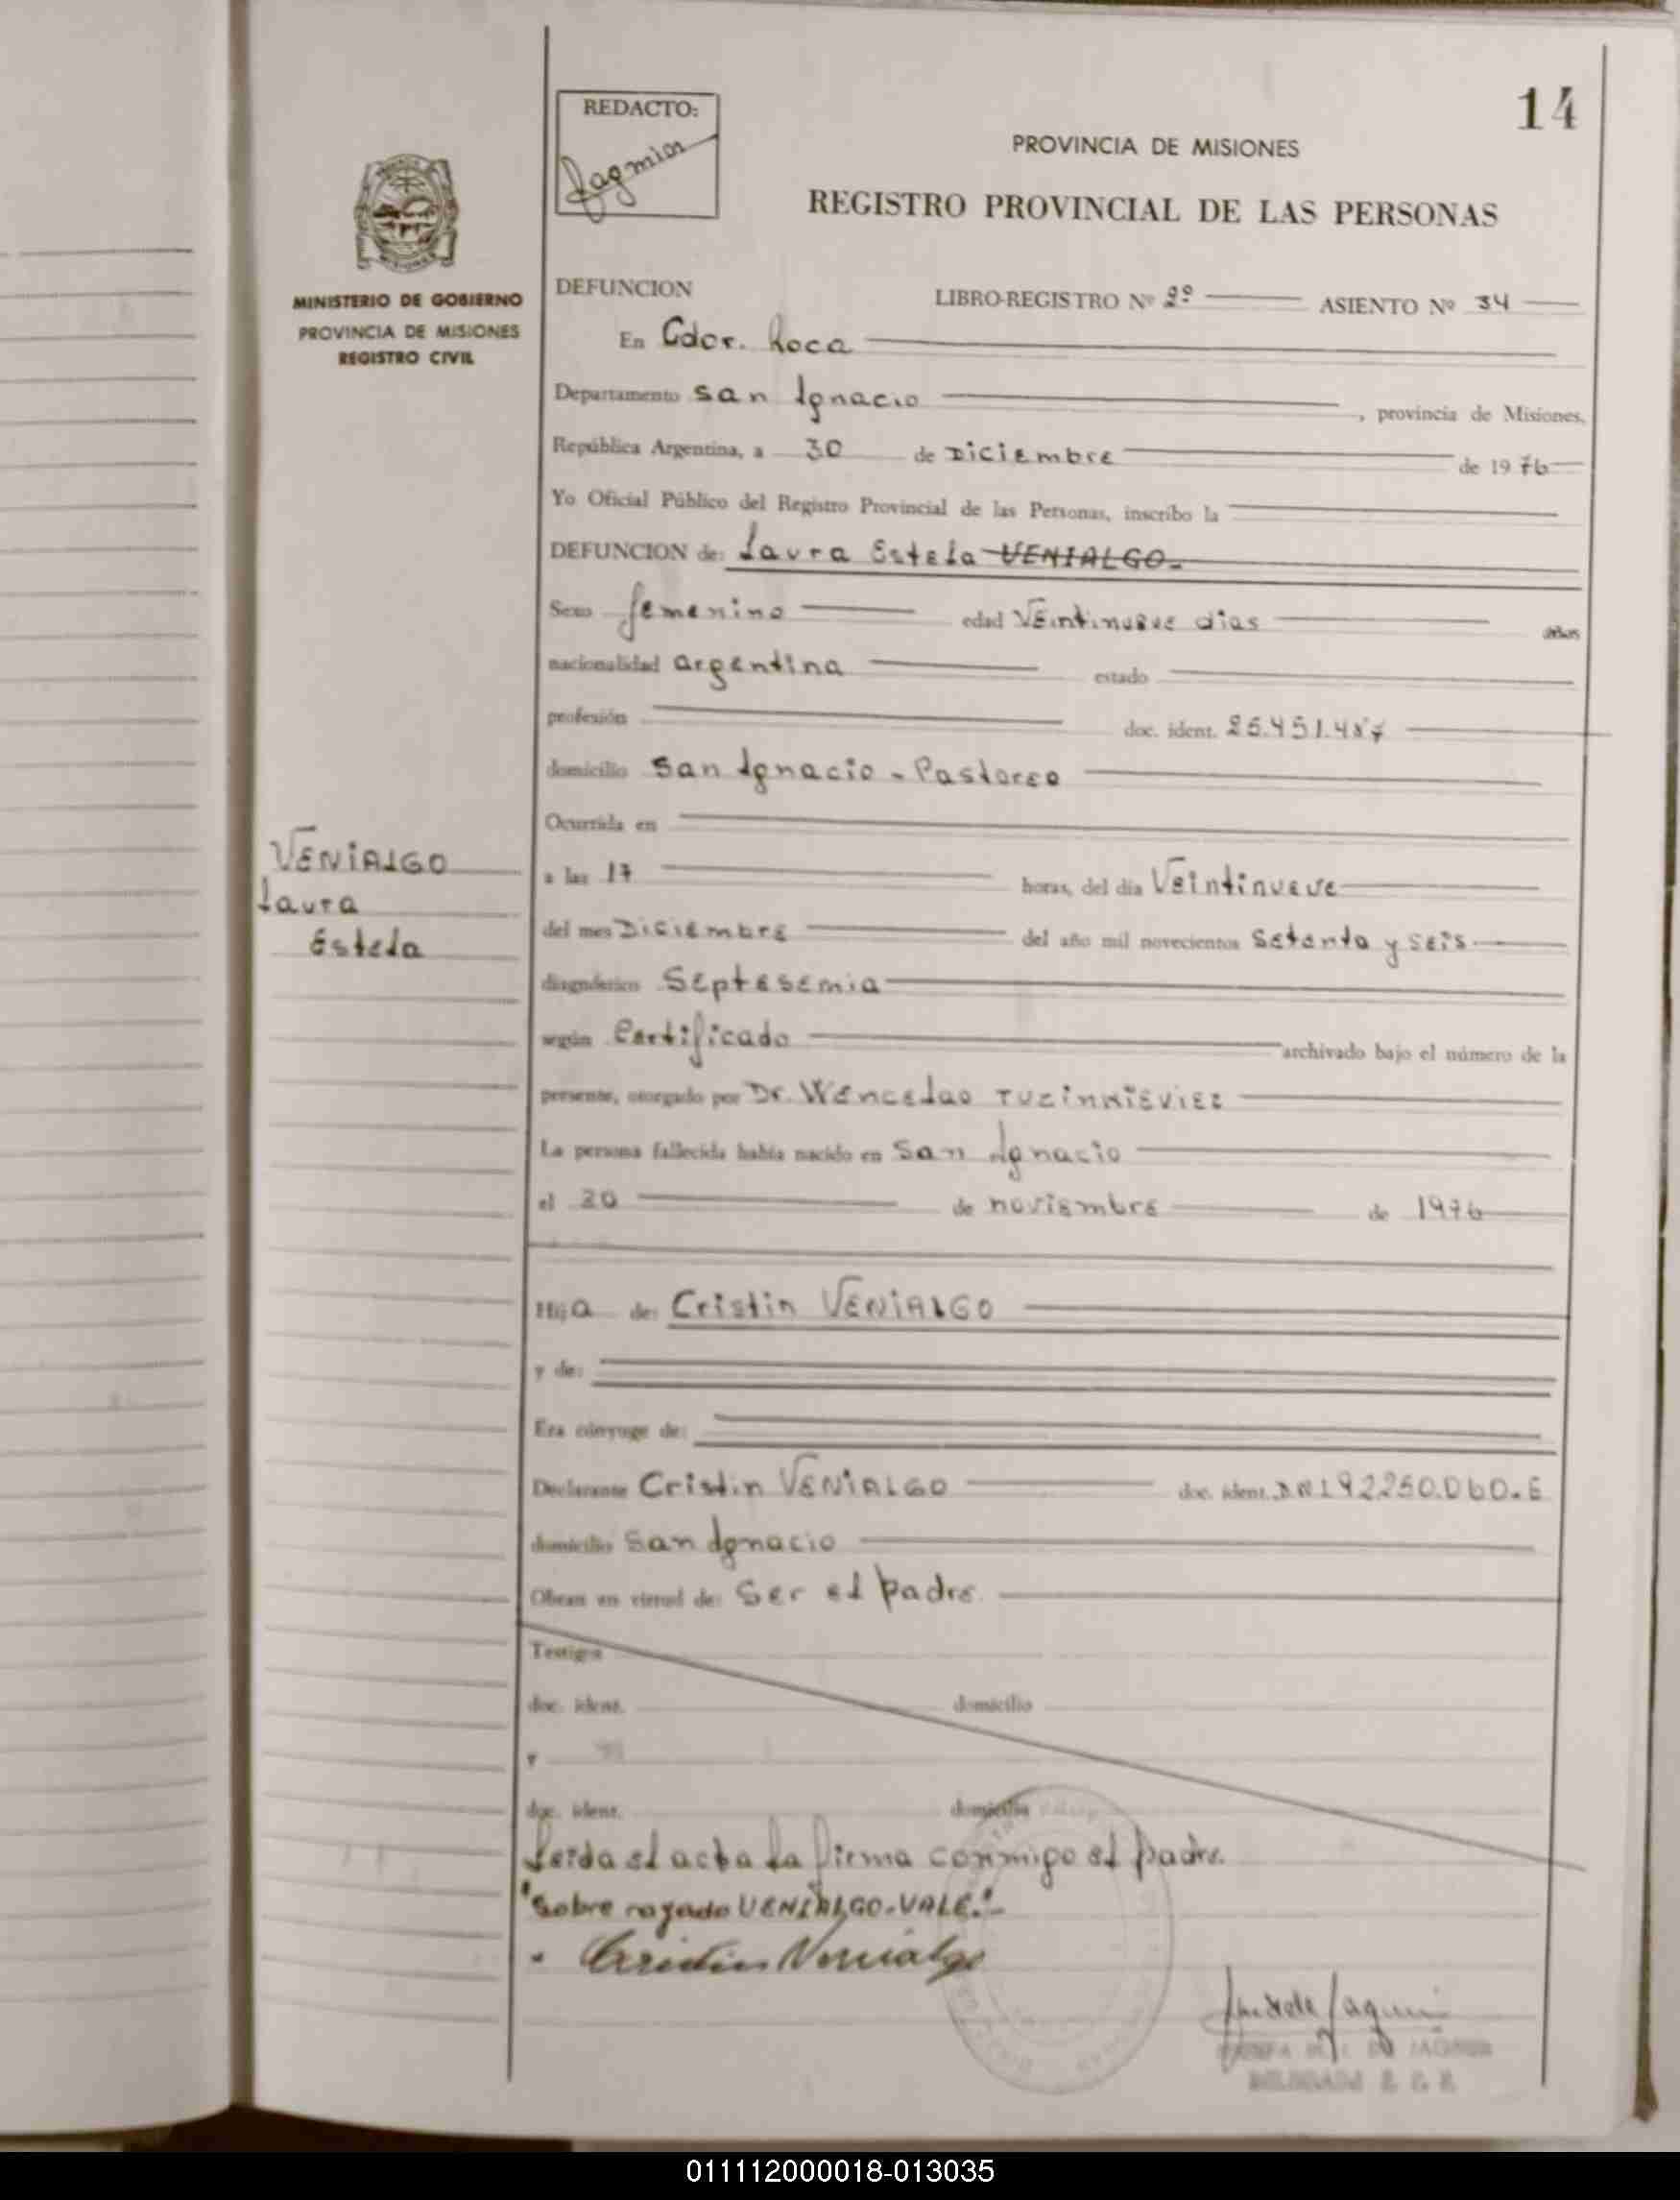 14
REDACTO:
PROVINCIA DE MISIONES
REGISTRO PROVINCIAL DE LAS PERSONAS
MINISTERIO DE GOBIERNO
PROVINCIA DE MISIONES
REGISTRO CIVIL
DEFUNCION LIBRO-REGISTRO Nº 2º ASIENTO Nº 34
En Gdor. Roca
Departamento San Ignacio , provincia de Misiones,
República Argentina, a 30 de Diciembre de 1976
Yo Oficial Público del Registro Provincial de las Personas, inscribo la
DEFUNCION de: Laura Estela VENIALGO.
Sexo femenino edad Veintinueve dias años
nacionalidad argentina estado
profesión doc. ident. 25.451.487
domicilio San Ignacio - Pastoreo
Ocurrida en
VENIALGO
Laura
Estela
a las 17 horas, del día Veintinueve
del mes Diciembre del año mil novecientos Setenta y seis
diagnóstico Septesemia
según Certificado archivado bajo el número de la
presente, otorgado por Dr. Wenceslao
La persona fallecida había nacido en San Ignacio
el 30 de noviembre de 1976
Hija de: Cristin VENIALGO
y de:
Era cónyuge de:
Declarante Cristin VENIALGO doc. ident.
domicilio San Ignacio
Obran en virtud de: Ser el padre.
Testigos
doc. ident. domicilio
y
doc. ident. domicilio
Leida el acta la firma conmigo el padre.
"Sobre rayado VENIALGO-VALE".-
Cristin Venialgo
011112000018-013035